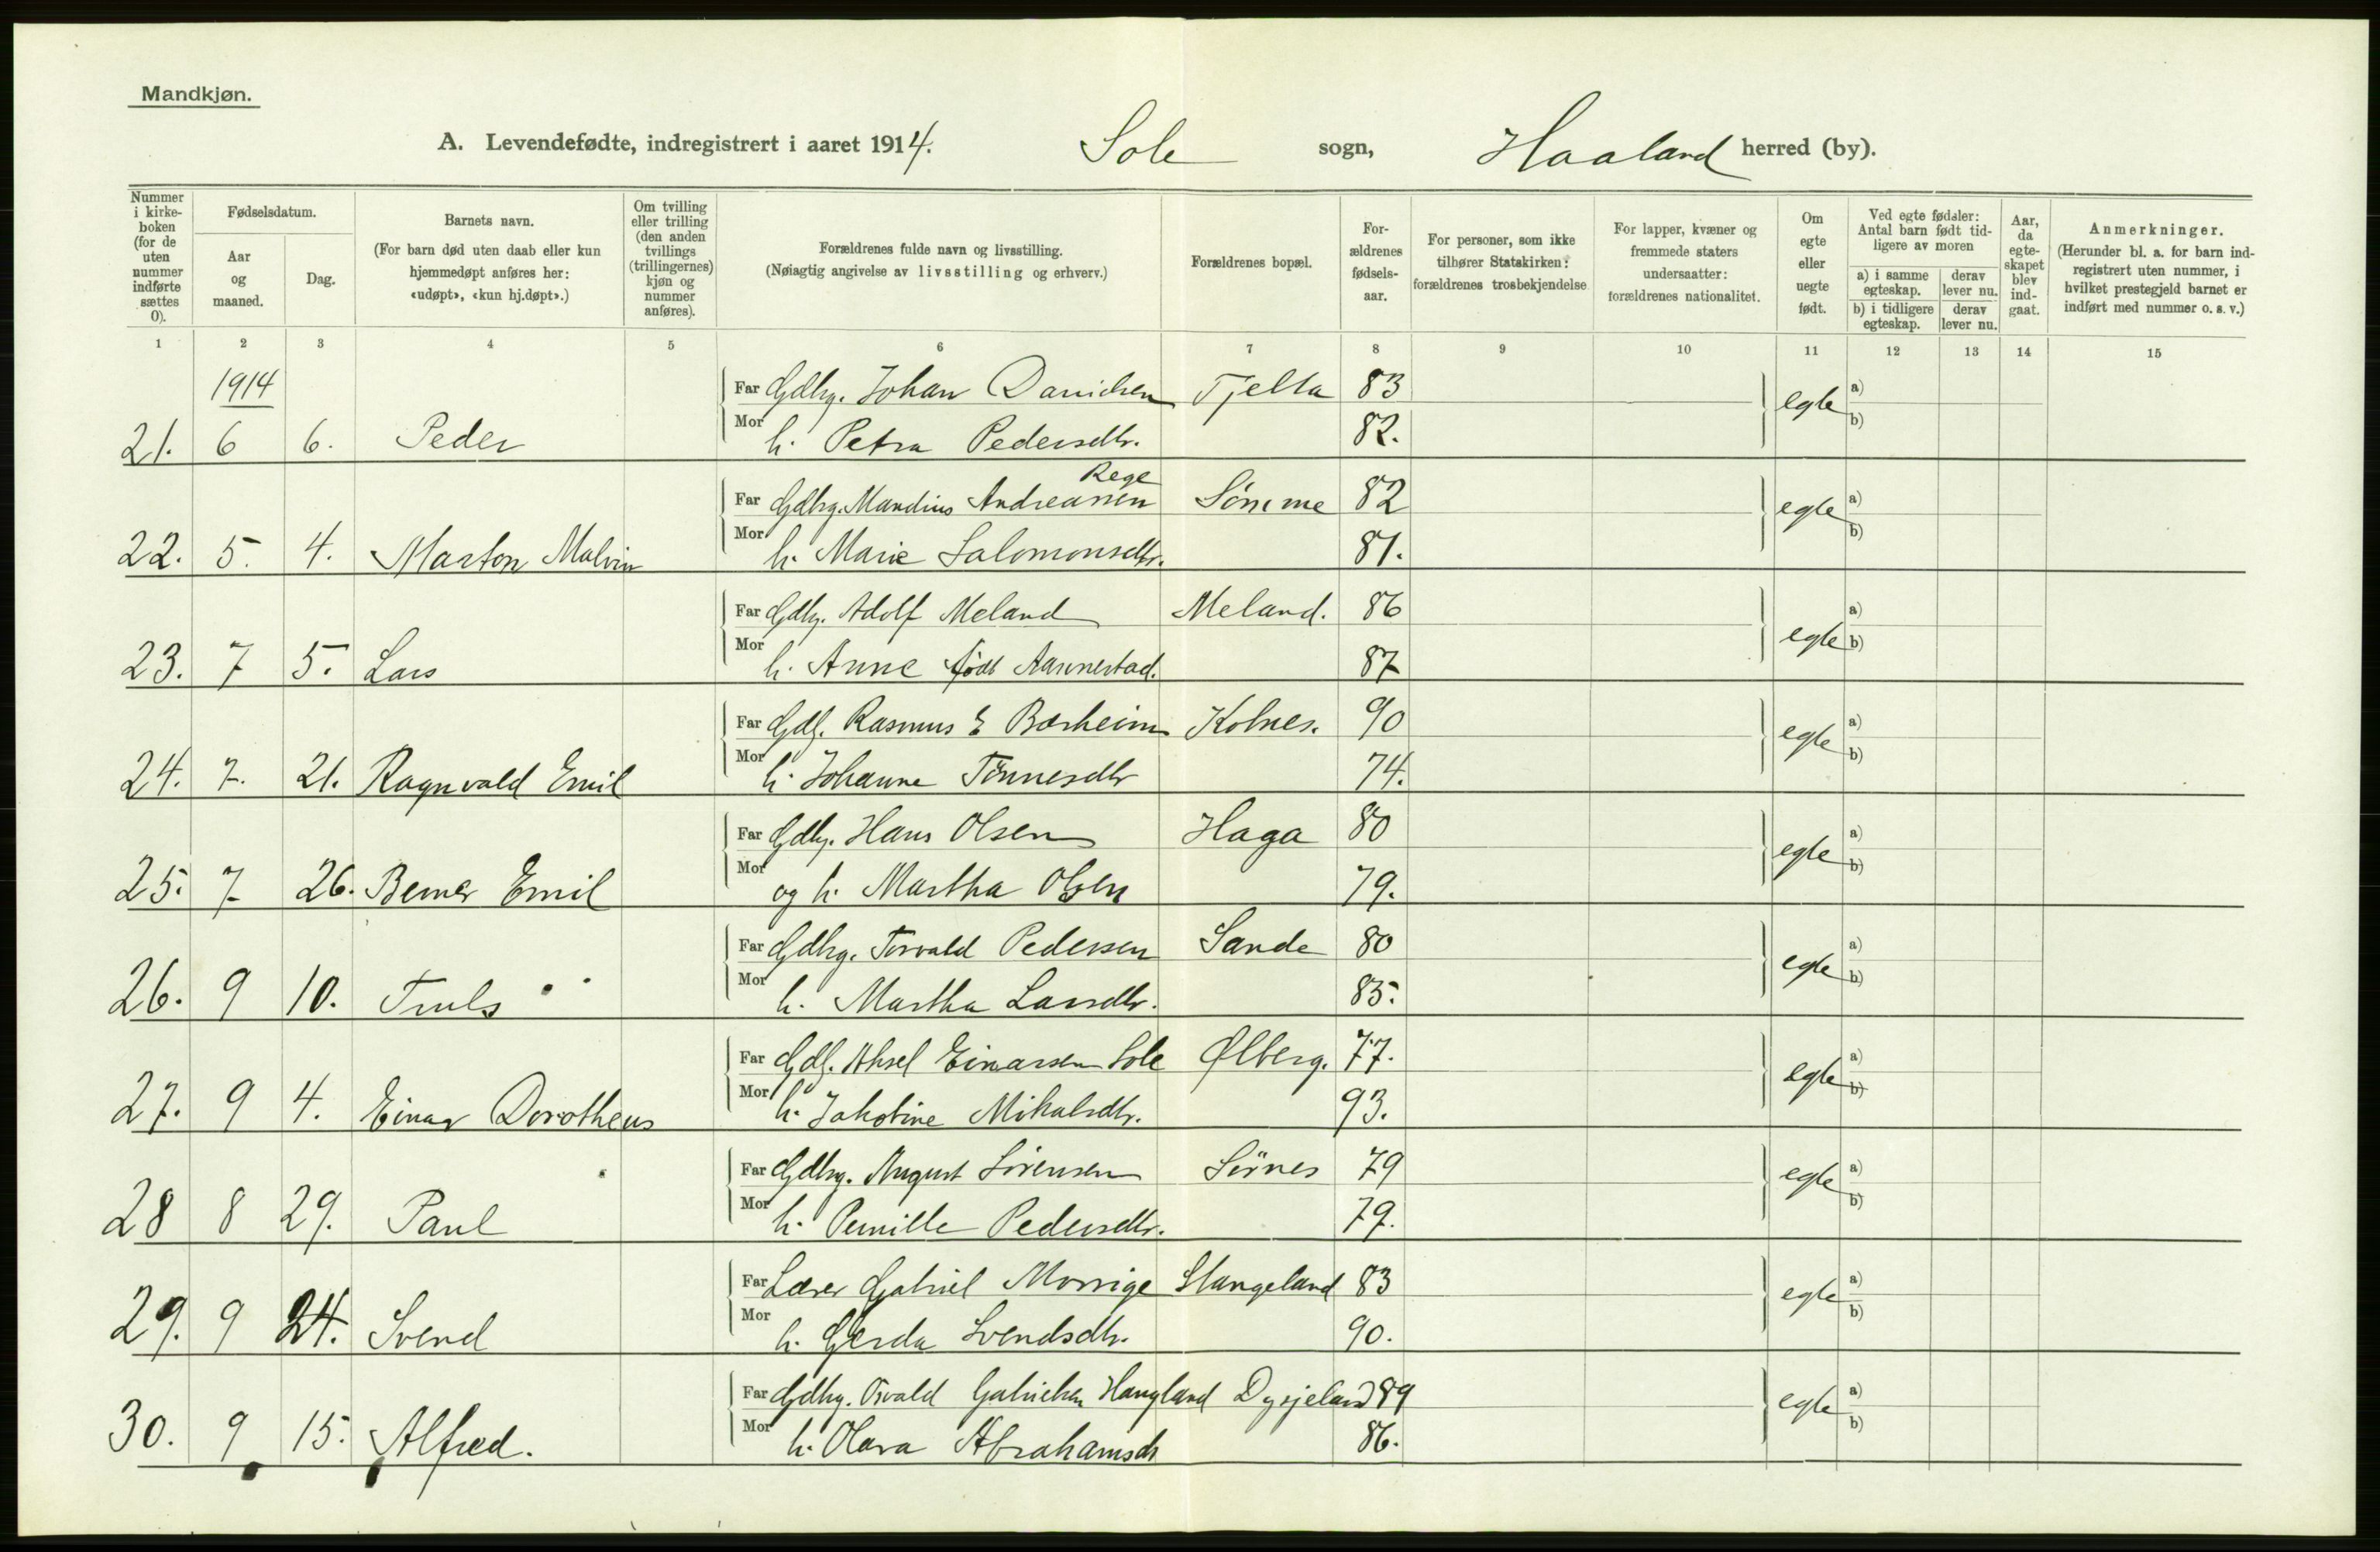 Mandkjøn.
A. Levendefødte, indregistrert i aaret 1914. Sole sogn, Haaland herred (by).
Nummer i kirke-boken (for de uten nummer indførte sættes 0).
Fødselsdatum.
Aar og maaned.
Dag.
Barnets navn.
(For barn død uten daab eller kun hjemmedøpt anføres her: «udøpt», «kun hj.døpt».)
Om tvilling eller trilling (den anden tvillings (trillingernes) kjøn og nummer anføres).
Forældrenes fulde navn og livsstilling.
(Nøiagtig angivelse av livsstilling og erhverv.)
Forældrenes bopæl.
For-ældrenes fødsels-aar.
For personer, som ikke tilhører Statskirken: forældrenes trosbekjendelse
For lapper, kvæner og fremmede staters undersaatter: forældrenes nationalitet.
Om egte eller uegte født.
Ved egte fødsler: Antal barn født tid-ligere av moren
a) i samme egteskap.
derav lever nu.
b) i tidligere egteskap.
derav lever nu.
Aar, da egte-skapet blev ind-gaat.
Anmerkninger.
(Herunder bl. a. for barn ind-registrert uten nummer, i hvilket prestegjeld barnet er indført med nummer o. s. v.)
1 2 3 4 5 6 7 8 9 10 11 12 13 14 15
1914
Far Gdbrg. Johan Danielsen Tjelta 83 egte a)
21. 6 6. Peder Mor h. Petra Pedersdtr. 82. b)
Rege
Far Gdbrg. Mandius Andreassen Sømme 82 egte a)
22. 5. 4. Marton Malvin Mor h. Marie Salomonsdtr. 81. b)
Far Gdbg. Adolf Meland Meland. 86 egte a)
23. 7 5. Lars Mor h. Anne født Aannestad. 87 b)
Far Gdb. Rasmus E Bærheim Kolnes. 90 egte a)
24. 7. 21. Ragnvald Emil Mor h. Johanne Tønnesdtr 74. b)
Far Gdbg. Hans Olsen Haga 80 egte a)
25. 7 26. Berner Emil Mor og h. Martha Olsen 79. b)
Far Gdbrg. Torvald Pedersen Sande 80 egte a)
26. 9 10. Truls Mor h. Martha Larsdtr. 85. b)
Far Gdb. Aksel Einarsen Sole Ølberg. 77. egte a)
27. 9 4. Einar Dorotheus Mor h. Jakobine Mikalsdtr. 93. b)
Far Gdbrg. August Sørensen Sørnes 79 egte a)
28 8 29. Paul Mor h. Pernille Pedersdtr. 79. b)
Far Lærer Gabriel Monsige Stangeland 83 egte a)
29. 9 24. Svend Mor h. Gerda Svendsdtr. 90. b)
Far Gdbrg. Osvald Gabrielsen Haugland Dysjeland 89 egte a)
30. 9 15. Alfred. Mor h. Olava Abrahamsdt 86. b)